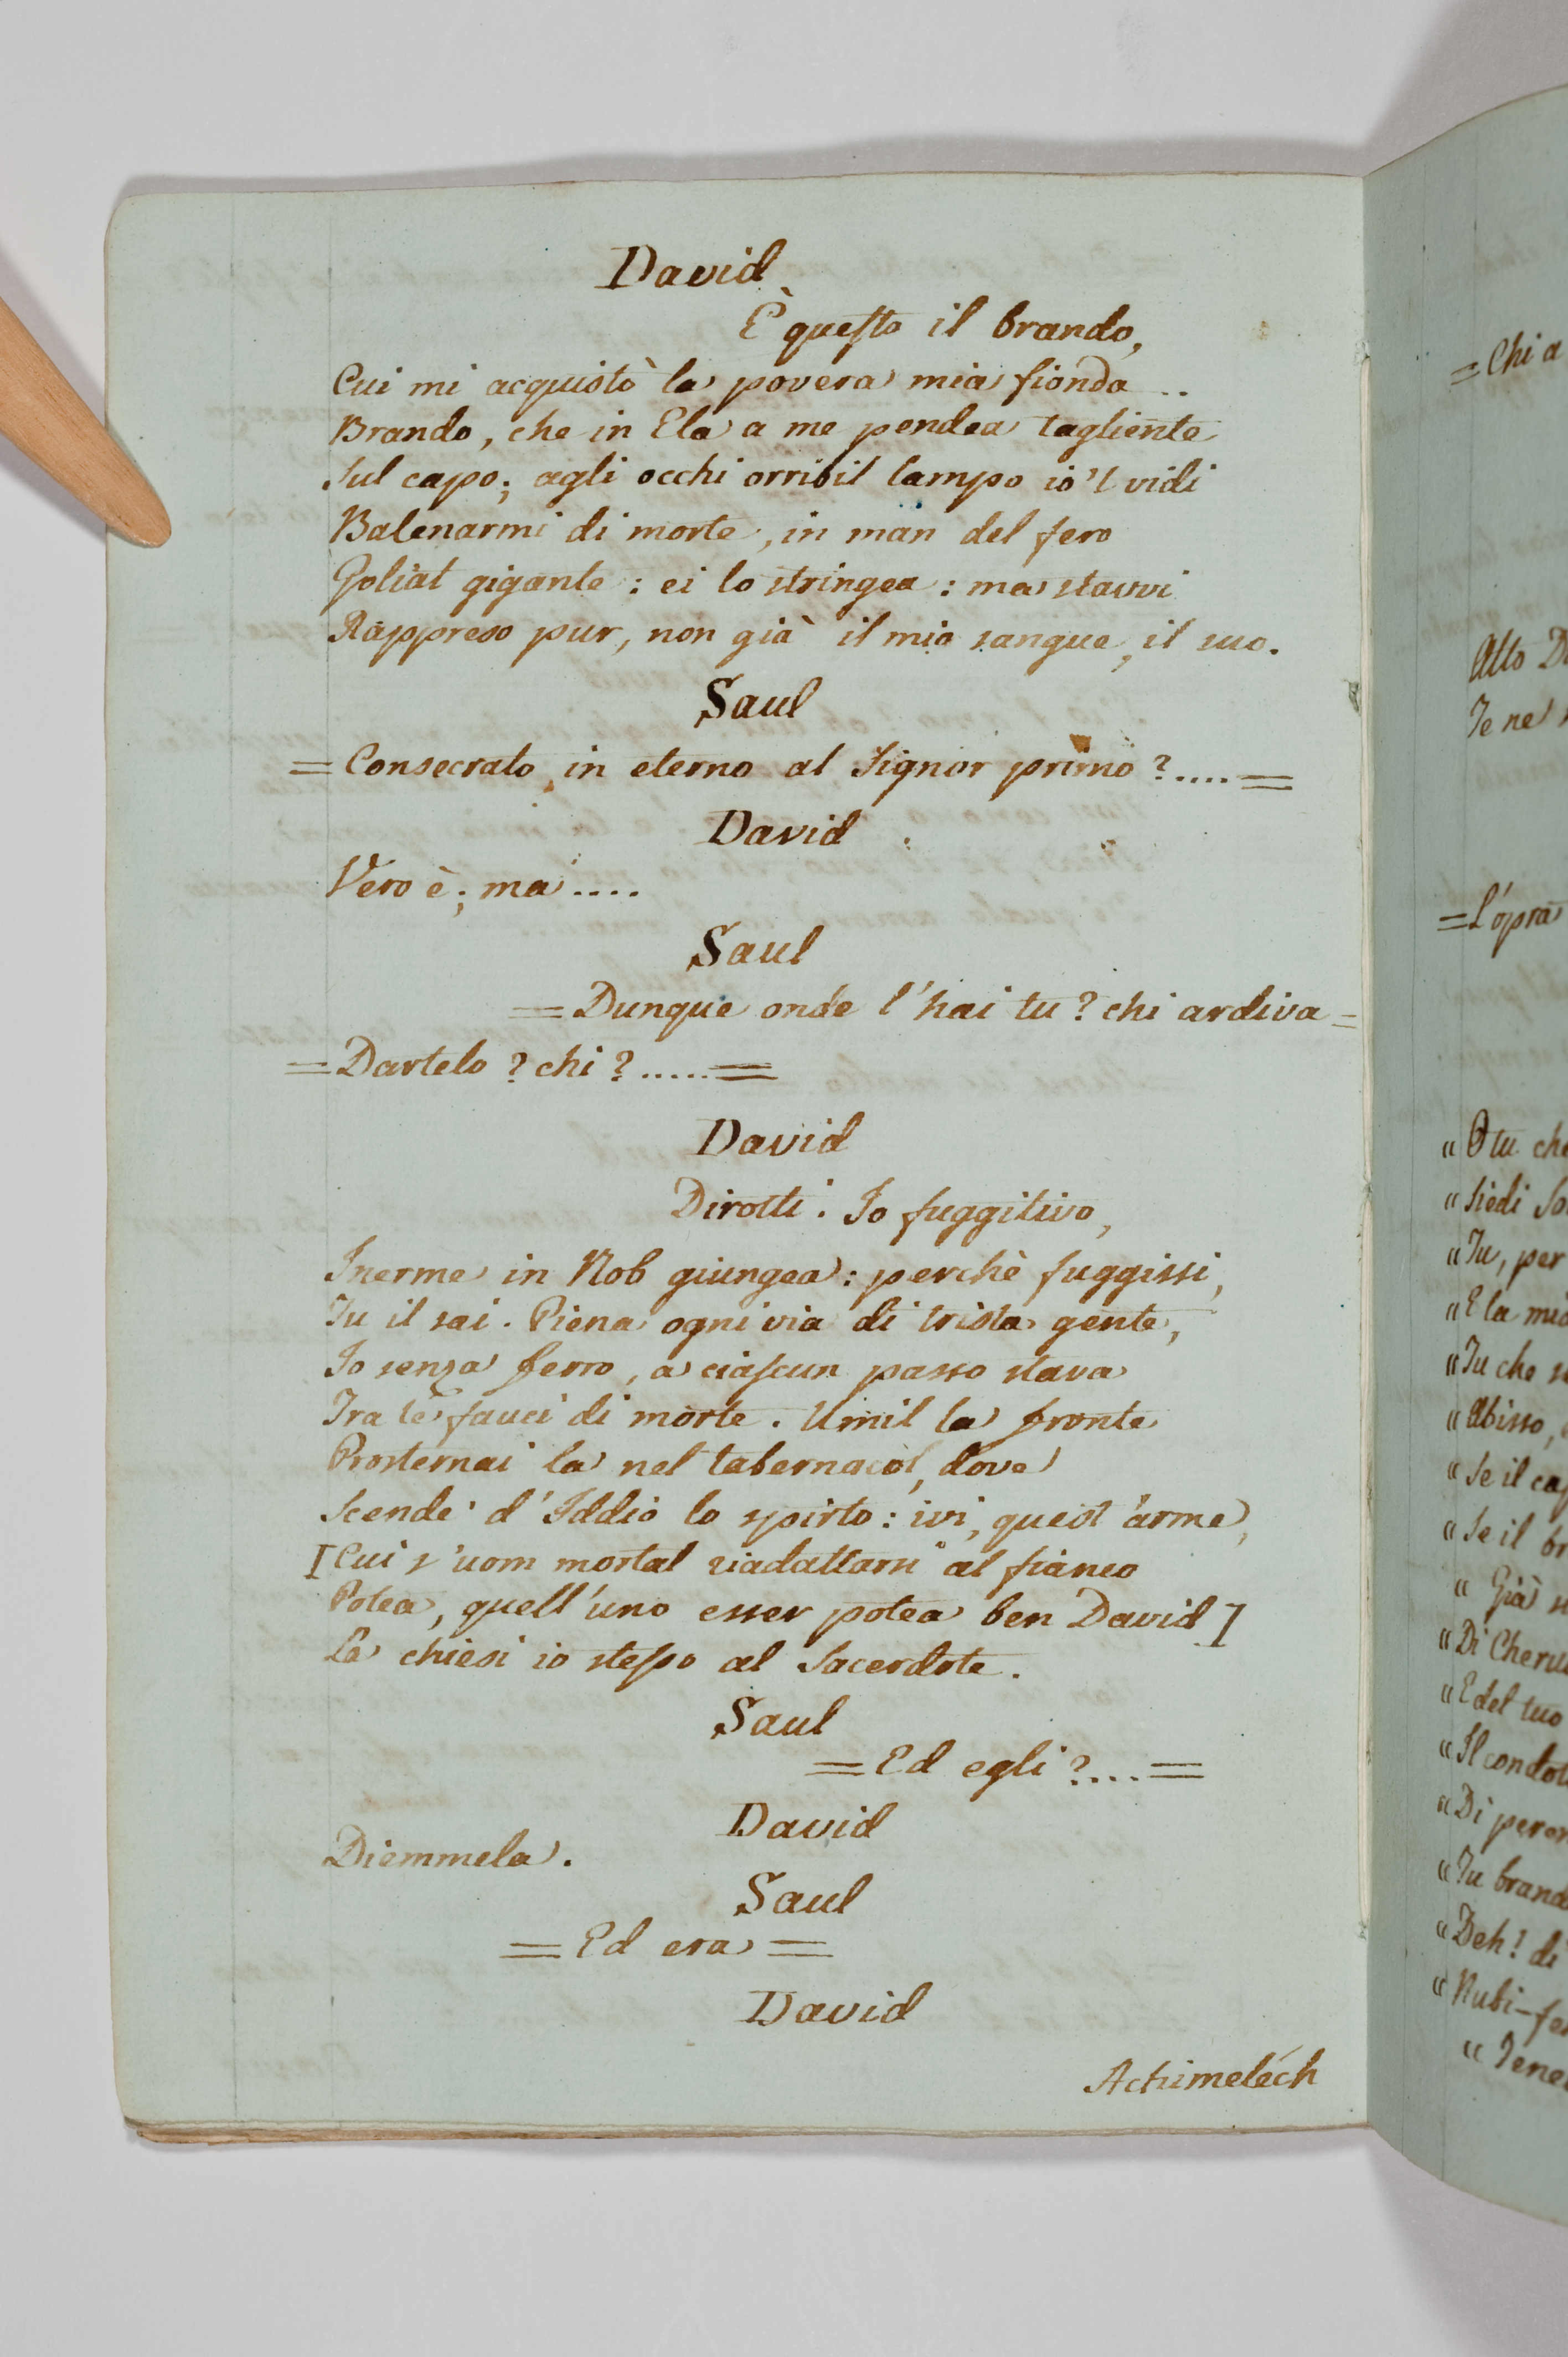 David
È questo il brando,
Cui mi acquistò la povera mia fionda..
Brando, che in Ela a me pendea tagliente
Sul capo; agli occhi orribil lampo io 'l vidi
Balenarmi di morte, in man del fero
Goliat gigante: ei lo stringea: ma stavvi
Rappreso pur, non già il mio sangue, il suo.
Saul
= Consecrato, in eterno al Signor primo?....=
David
Vero è; ma....
Saul
= Dunque onde l'hai tu? chi ardiva =
= Dartelo? chi?.....=
David
Dirotti: Io fuggitivo,
Inerme in Nob giungea: perchè fuggissi,
Tu il sai. Piena ogni via di trista gente,
Io senza ferro, a ciascun passo stava
Tra le fauci di morte. Umil la fronte
Prosternai la nel tabernacòl, dove
Scende d'Iddio lo spirto: ivi, quest'arme,
[Cui s'uom mortal riadattarsi al fianco
Potea, quell'uno esser potea ben David]
La chiesi io stesso al Sacerdote.
Saul
= Ed egli?....=
David
Diemmela.
Saul
= Ed era =
David
Achimeléch
= Chi a
Alto
Te ne
= L'opra
" O tu che
" Siedi
" Tu, per
" E la
" Tu che
" Abisso,
" Se il
" Se il
" Già
" Di
" E del tuo
" Il
" Di
" Tu
" Deh! di
"
"